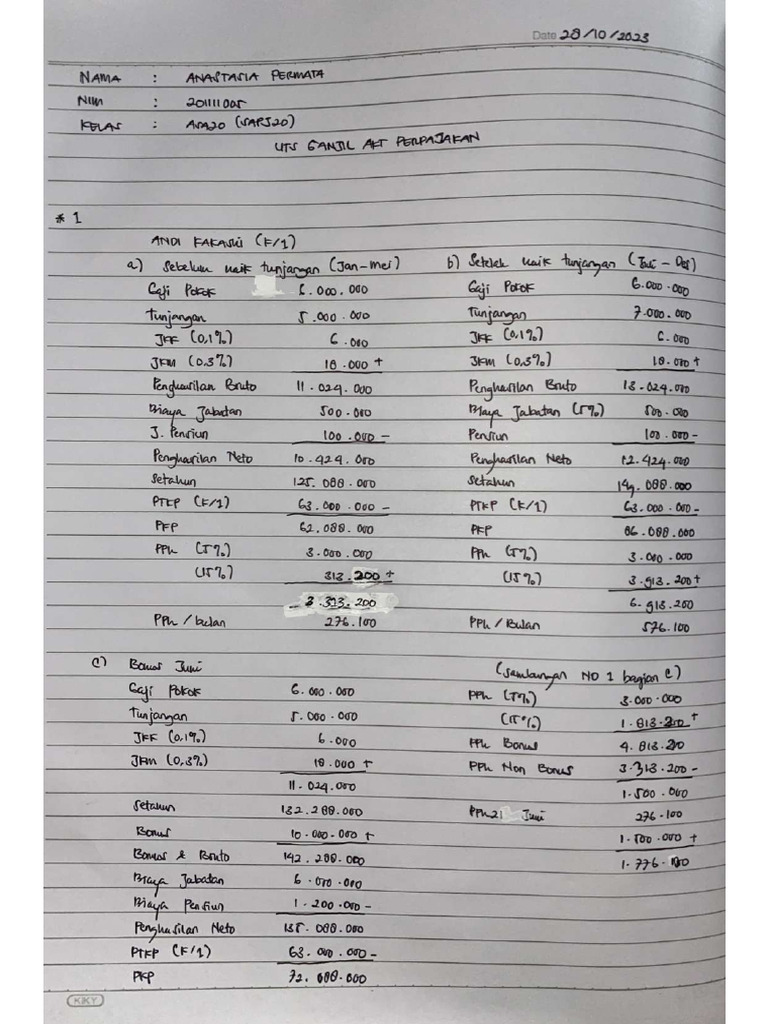 Date 28/10/2023
NAMA : ANASTASIA PERMATA
NIM : 201111005
KELAS : ASA20 (SAPJ20)
UTS GANJIL AKT PERPAJAKAN
* 1
ANDI KAKASHI (K/1)
a) Sebelum naik tunjangan (Jan-Mei)
Gaji Pokok 6.000.000
Tunjangan 5.000.000
JKK (0,1%) 6.000
JKM (0,3%) 18.000 +
Penghasilan Bruto 11.024.000
Biaya Jabatan 500.000
J. Pensiun 100.000 -
Penghasilan Neto 10.424.000
Setahun 125.088.000
PTKP (K/1) 63.000.000 -
PKP 62.088.000
PPh (5%) 3.000.000
(15%) 313.200 +
3.313.200
PPh / bulan 276.100
b) Setelah naik tunjangan (Juni - Des)
Gaji Pokok 6.000.000
Tunjangan 7.000.000
JKK (0,1%) 6.000
JKM (0,3%) 18.000 +
Penghasilan Bruto 13.024.000
Biaya Jabatan (5%) 500.000
Pensiun 100.000 -
Penghasilan Neto 12.424.000
Setahun 149.088.000
PTKP (K/1) 63.000.000 -
PKP 86.088.000
PPh (5%) 3.000.000
(15%) 3.913.200 +
6.913.200
PPh / Bulan 576.100
c) Bonus Juni
Gaji Pokok 6.000.000
Tunjangan 5.000.000
JKK (0,1%) 6.000
JKM (0,3%) 18.000 +
11.024.000
Setahun 132.288.000
Bonus 10.000.000 +
Bonus & Bruto 142.288.000
Biaya Jabatan 6.000.000
Biaya Pensiun 1.200.000 -
Penghasilan Neto 135.088.000
PTKP (K/1) 63.000.000 -
PKP 72.088.000
(Sambungan NO 1 bagian C)
PPh (5%) 3.000.000
(15%) 1.813.200 +
PPh Bonus 4.813.200
PPh Non Bonus 3.313.200 -
1.500.000
PPh 21 Juni 276.100
1.500.000 +
1.776.100
KIKY